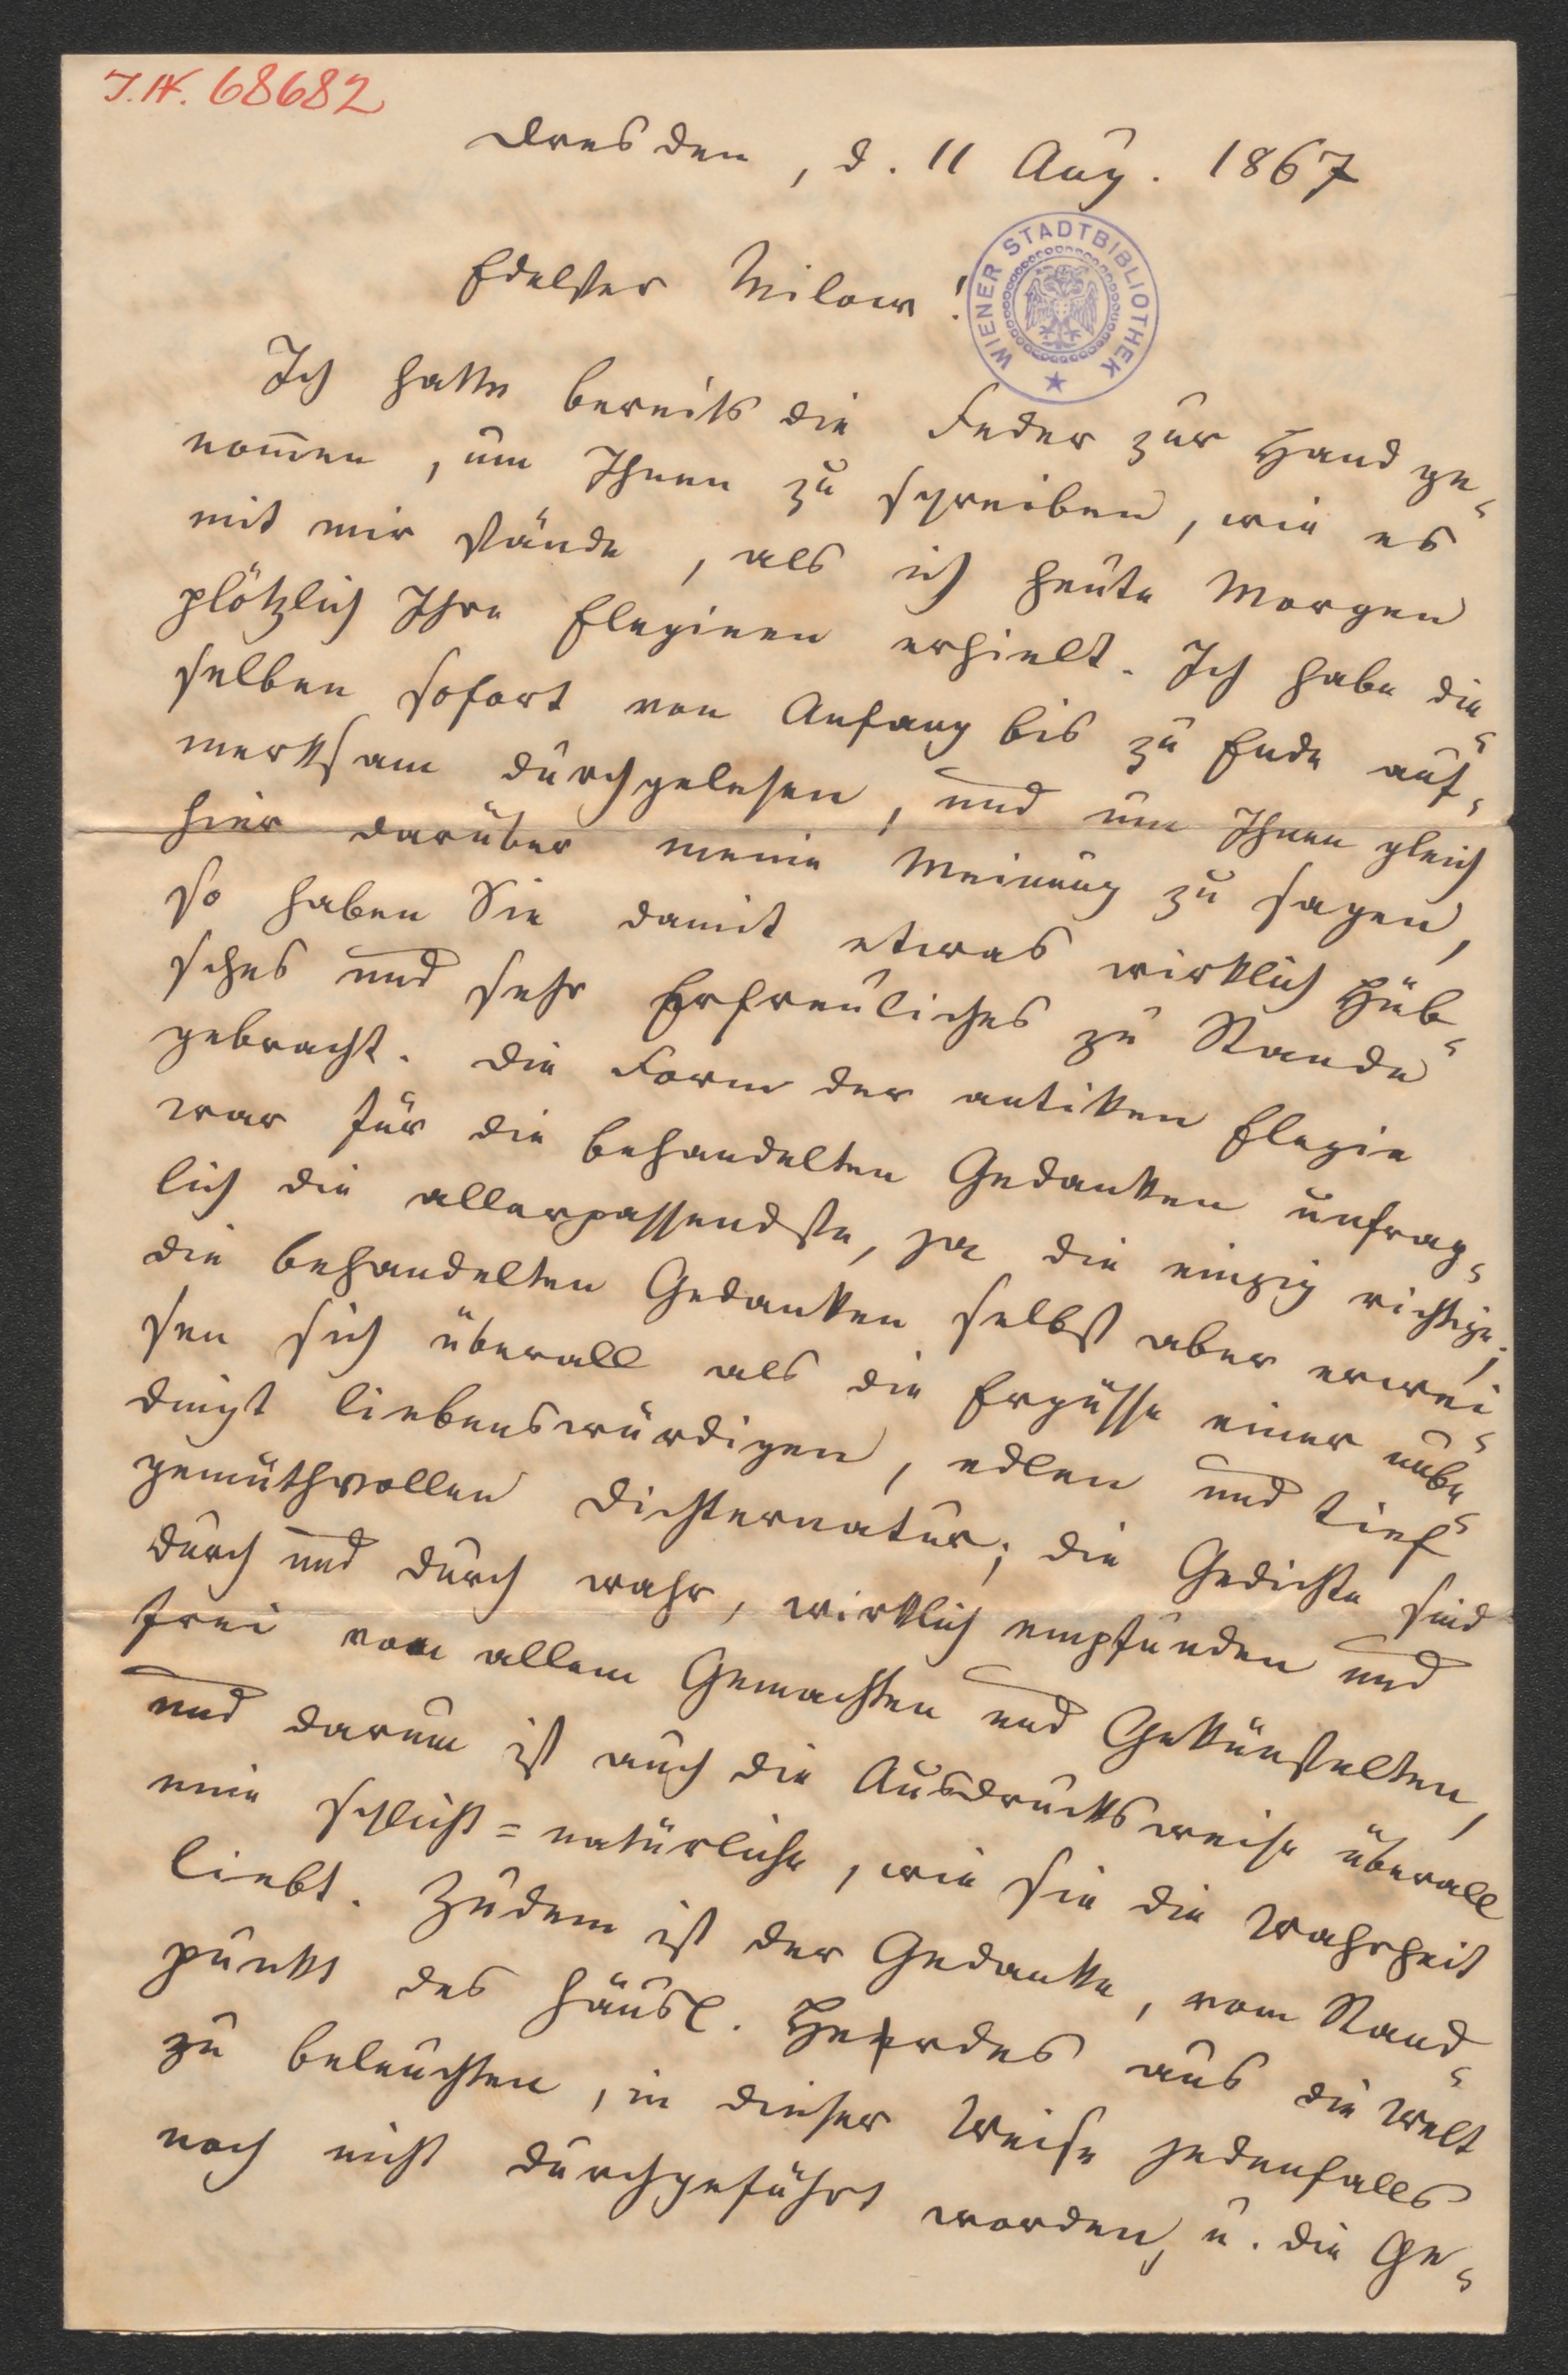 J.N. 68682
Dresden, d. 11 Aug. 1867
WIENER STADTBIBLIOTHEK
Edelster Milow!
Ich hatte bereits die Feder zur Hand ge-
nom̄en, um Ihnen zu schreiben, wie es
mit mir stände, als ich heute Morgen
plötzlich Ihre Elegieen erhielt. Ich habe die-
selben sofort von Anfang bis zu Ende auf-
merksam durchgelesen, und um Ihnen gleich
hier darüber meine Meinung zu sagen,
so haben Sie damit etwas wirklich Hüb-
sches und sehr Erfreuliches zu Stande
gebracht. Die Form der antiken Elegie
war für die behandelten Gedanken unfrag-
lich die allerpassendste, ja die einzig richtige;
die behandelten Gedanken selbst aber erwei-
sen sich überall als die Ergüsse einer unbe-
dingt liebenswürdigen, edlen und tief-
gemüthvollen Dichternatur; die Gedichte sind
durch und durch wahr, wirklich empfunden und
frei von allem Gemachten und Gekünstelten,
und darum ist auch die Ausdrucksweise überall
eine schlicht=natürliche, wie sie die Wahrheit
liebt. Zudem ist der Gedanke, vom Stand-
punkt des häusl. Heerdes aus die Welt
zu beleuchten, in dieser Weise jedenfalls
noch nicht durchgeführt worden, u. die Ge-